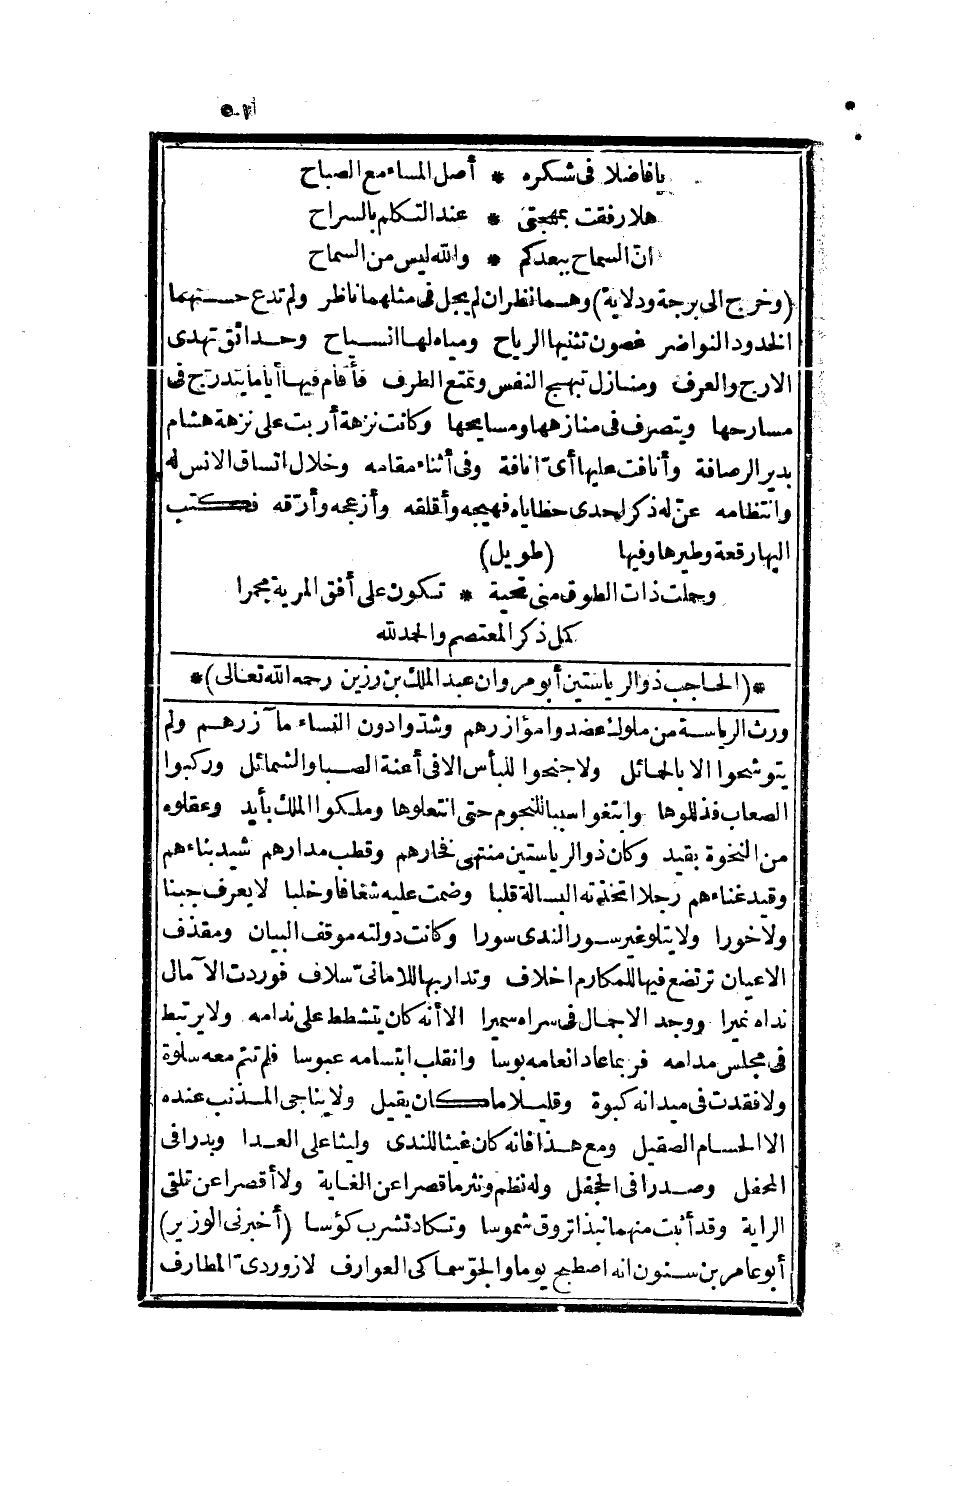 يا فاضلا فى شكره * أصل المساء مع الصباح
هلا رفقت بمهجتى * عند التكلم بالسراح
ان السماح ببعدكم * والله ليس من السماح
(وخرج الى برجة ودلاية) وهما نظران لم يجل فى مثلهما ناظر ولم تدع حسنتهما
الخدود النواضر غصون تثنيها الرياح ومياه لها انسياح وحدائق تهدى
الارج والعرف ومنازل تبهج النفس وتمتع الطرف فأقام فيها أياما يتدرج فى
مسارحها ويتصرف فى منازهها ومسايحها وكانت نزهة أربت على نزهة هشام
بدير الرصافة وأنافت عليها أىّ انافة وفى أثناء مقامه وخلال اتساق الانس له
وانتظامه عنّ له ذكر لحدى حظاياه فهيجه وأقلقه وأزعجه وأرّقه فكتب
اليها رقعة وطيرها وفيها (طويل)
وحملت ذات الطوق منى تحية * تكون على أفق المرية مجمرا
كمل ذكر المعتصم والحمد لله
*(الحاجب ذو الرياستين أبو مروان عبد الملك بن رزين رحمه الله تعالى)*
ورث الرياسة من ملوك عضدوا مؤازرهم وشدوا دون النساء مآزرهم ولم
يتوشحوا الا بالحمائل ولا جنحوا للبأس الا فى أعنة الصبا والشمائل وركبوا
الصعاب فذللوها وابتغوا سببا للنجوم حتى انتعلوها وملكوا الملك بأيد وعقلوه
من النخوة بقيد وكان ذو الرياستين منتهى فخارهم وقطب مدارهم شيد بناءهم
وقيد غناءهم رجلا اتخذته البسالة قلبا وضمت عليه شغافا وخلبا لا يعرف جبنا
ولا خورا ولا يتلو غير سور الندى سورا وكانت دولته موقف البيان ومقذف
الاعيان ترتضع فيها للمكارم اخلاف وتدار بها للامانىّ سلاف فوردت الآمال
نداه نميرا ووجد الاجمال فى سراه سميرا الا أنه كان يتشطط على ندامه ولا يرتبط
فى مجلس مدامه فربما عاد انعامه بوسا وانقلب ابتسامه عبوسا فلم تتم معه سلوة
ولا فقدت فى ميدانه كبوة وقليلا ما كان يقيل ولا يناجى المذنب عنده
الا الحسام الصقيل ومع هذا فانه كان غيثا للندى وليثا على العدا وبدرا فى
المحفل وصدرا فى الجحفل وله نظم ونثر ما قصرا عن الغاية ولا أقصرا عن تلقى
الراية وقد أثبت منهما نبذا تروق شموسا وتكاد تشرب كؤسا (أخبرنى الوزير)
أبو عامر بن سنون انه اصطبح يوما والجوّ سماكى العوارف لازوردىّ المطارف